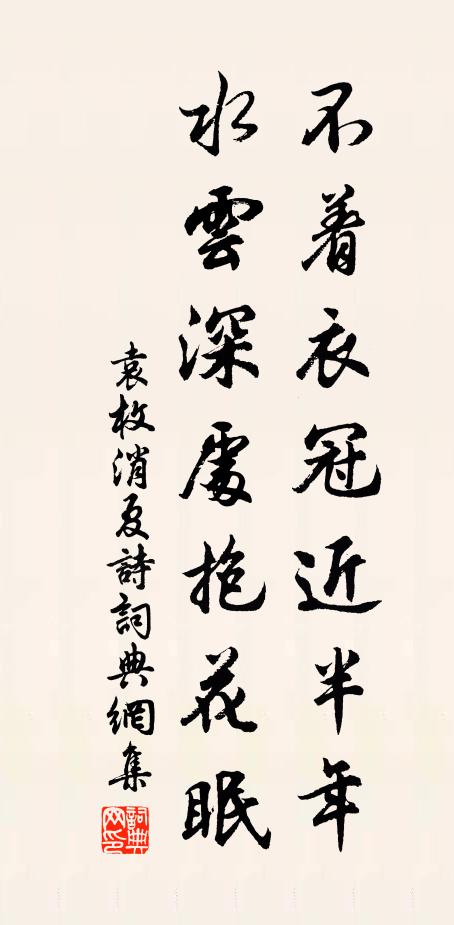 不着衣冠近半年
水雲深處抱花眠
袁枚消夏詩詞典網集
詞典網印